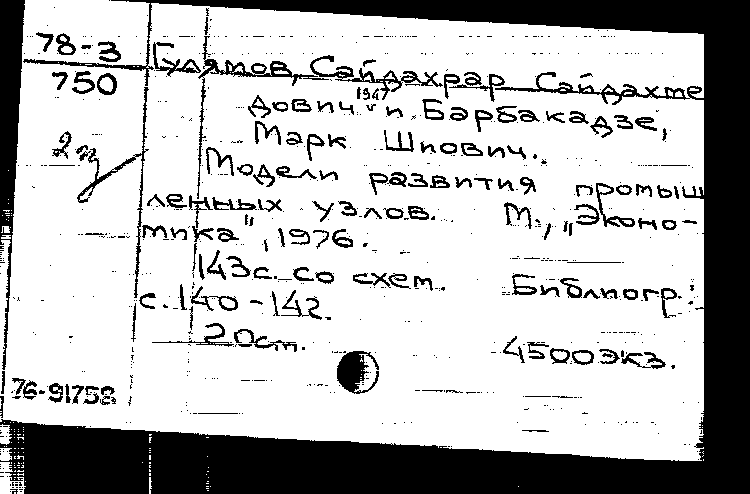 78-3 Гулямов, Сайдахрар Сайдахме
750 дович 1947 и Барбакадзе,
Марк Шиович.
2 э
Модели развития промыш
ленных узлов. М., „Эконо-
мика", 1976.
143с. со схем. Библиогр.:
с. 140-142.
20см. 4500экз.
76-91758